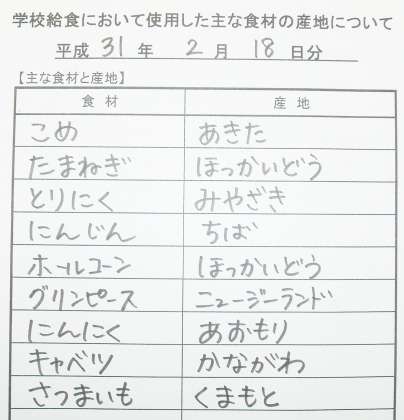 学校給食において使用した主な食材の産地について
平成 31 年 2 月 18 日分
【主な食材と産地】
食材 産地
こめ あきた
たまねぎ ほっかいどう
とりにく みやざき
にんじん ちば
ホールコーン ほっかいどう
グリンピース ニュージーランド
にんにく あおもり
キャベツ かながわ
さつまいも くまもと